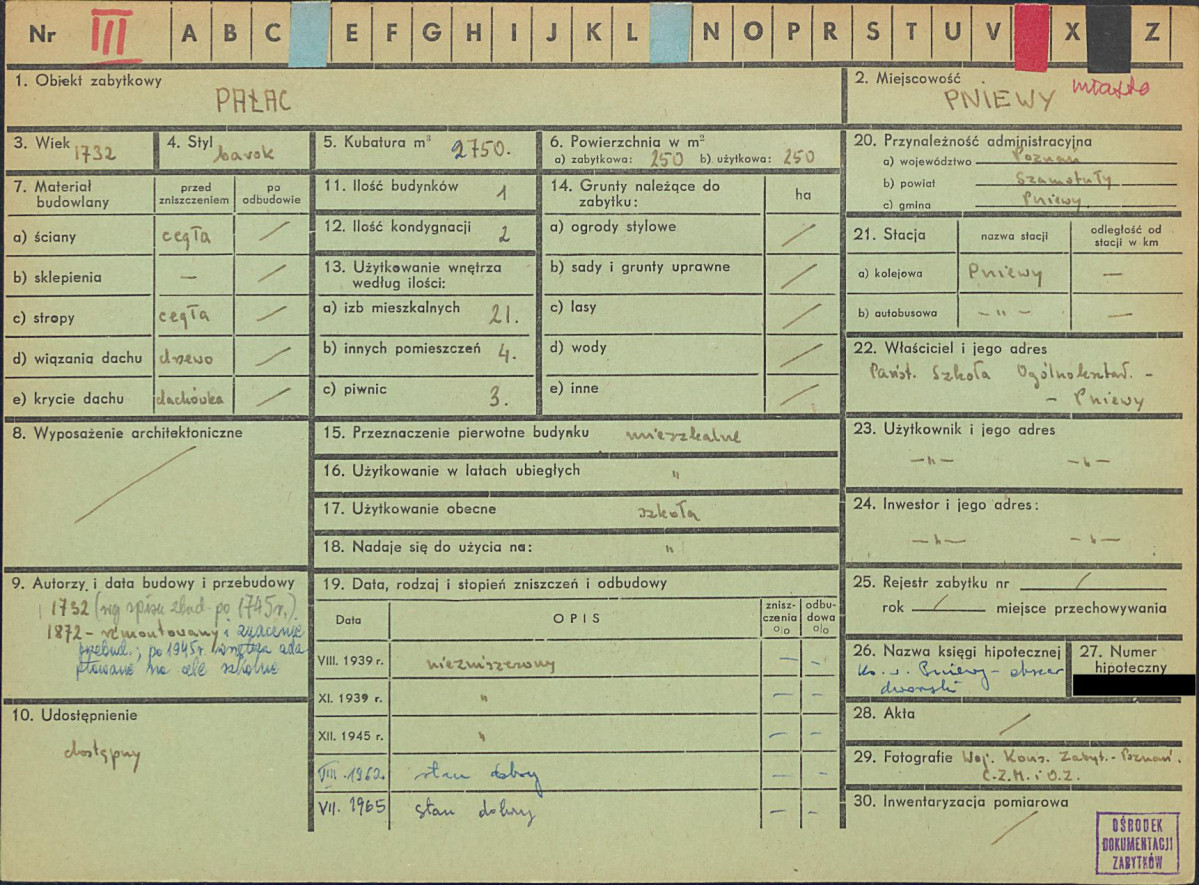 Nr III A B C E F G H I J K L N O P R S T U V X Z
1. Obiekt zabytkowy
PAŁAC
2. Miejscowość
PNIEWY miasto
3. Wiek 1732
4. Styl barok
5. Kubatura m³ 2750.
6. Powierzchnia w m²
a) zabytkowa: 250 b) użytkowa: 250
20. Przynależność administracyjna
a) województwo Poznań
b) powiat Szamotuły
c) gmina Pniewy.
7. Materiał budowlany
przed zniszczeniem
po odbudowie
a) ściany cegła /
b) sklepienia — /
c) stropy cegła /
d) wiązania dachu drzewo /
e) krycie dachu dachówka /
11. Ilość budynków 1
12. Ilość kondygnacji 2
13. Użytkowanie wnętrza
według ilości:
a) izb mieszkalnych 21.
b) innych pomieszczeń 4.
c) piwnic 3.
14. Grunty należące do
zabytku:
ha
a) ogrody stylowe /
b) sady i grunty uprawne /
c) lasy /
d) wody /
e) inne /
21. Stacja
nazwa stacji
odległość od
stacji w km
a) kolejowa Pniewy —
b) autobusowa — " — —
22. Właściciel i jego adres
Państ. Szkoła Ogólnokształ. -
- Pniewy
8. Wyposażenie architektoniczne
/
15. Przeznaczenie pierwotne budynku mieszkalne
16. Użytkowanie w latach ubiegłych "
17. Użytkowanie obecne szkoła
18. Nadaje się do użycia na: "
23. Użytkownik i jego adres
—"— —"—
24. Inwestor i jego adres:
—"— —"—
9. Autorzy i data budowy i przebudowy
1732 (wg spisu zbud. po 1745r.)
1872 - remontowany i znacznie
przebud.; po 1945r. wnętrza ada
ptowane na cele szkolne
10. Udostępnienie
dostępny
19. Data, rodzaj i stopień zniszczeń i odbudowy
Data
OPIS
znisz-
czenia
%
odbu-
dowa
%
VIII. 1939 r. niezniszczony — -
XI. 1939 r. " — —
XII. 1945 r. " — —
VIII. 1960. stan dobry — -
VII. 1965 stan dobry — -
25. Rejestr zabytku nr /
rok / miejsce przechowywania
26. Nazwa księgi hipotecznej
Ks. w. Pniewy - obszar
dworski
27. Numer
hipoteczny
28. Akta /
29. Fotografie Woj. Kons. Zabyt. - Poznań.
C.Z.M. i O.Z.
30. Inwentaryzacja pomiarowa
/
OŚRODEK
DOKUMENTACJI
ZABYTKÓW